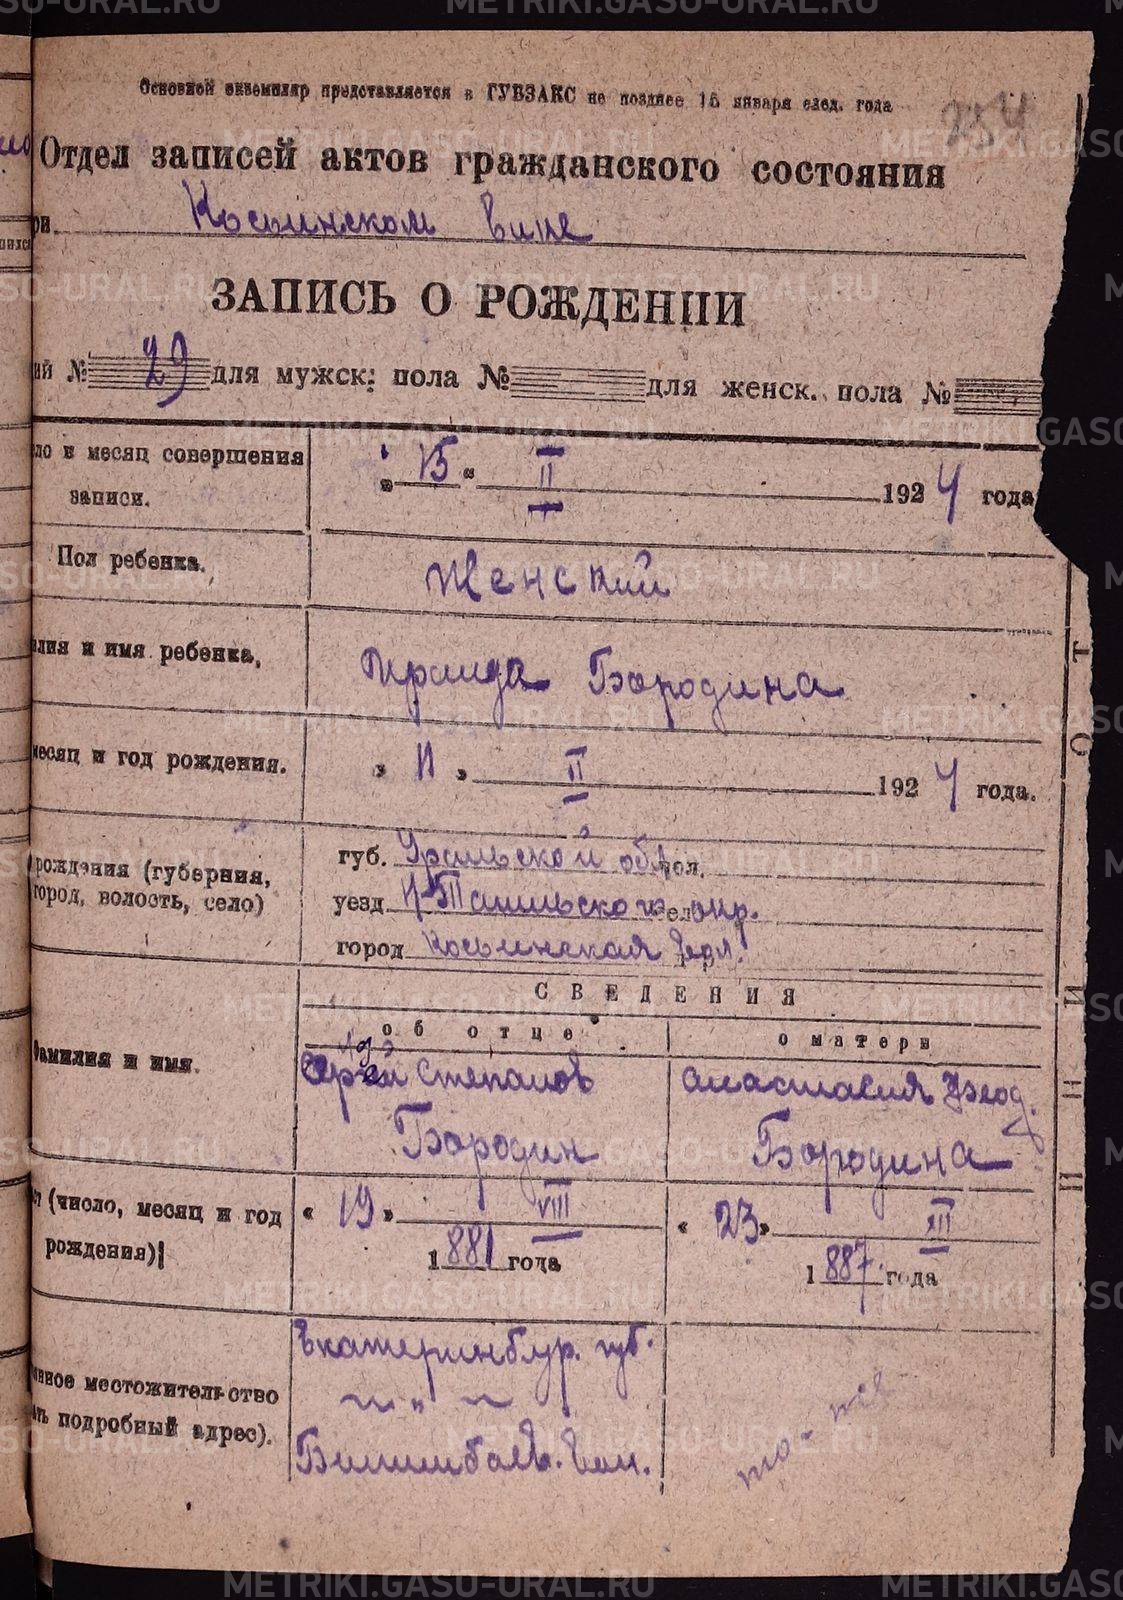 Основной экземпляр представляется в ГУБЗАКС не позднее 15 января след. года
Отдел записей актов гражданского состояния
ри Косьинском вике
ЗАПИСЬ О РОЖДЕНИИ
ий № 29 для мужск. пола № для женск. пола №
ло и месяц совершения записи. " 15 " II 1924 года
Пол ребенка. Женский
илия и имя ребенка, Ираида Бородина
месяц и год рождения. " 11 " II 1924 года.
рождэния (губерния, город, волость, село)
губ. Уральской обл
уезд Н-Тагильского окр.
город Косьинская вол.
СВЕДЕНИЯ
об отце о матери
Фамилия и имя. Степанов Анастасия Феод.
Бородин Бородина
ст (число, месяц и год рождения) « 19 » VIII 1881 года « 23 » XII 1887 года
янное местожительство
ать подробный адрес).
Екатеринбур. губ.
~ " ~
Билимбаев. вол.
то-же
О Т
METRIKI.GASO-URAL.RU